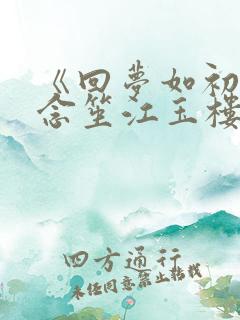 《回夢如初
念笙江玉樓
四方通行
未經同意禁止轉載